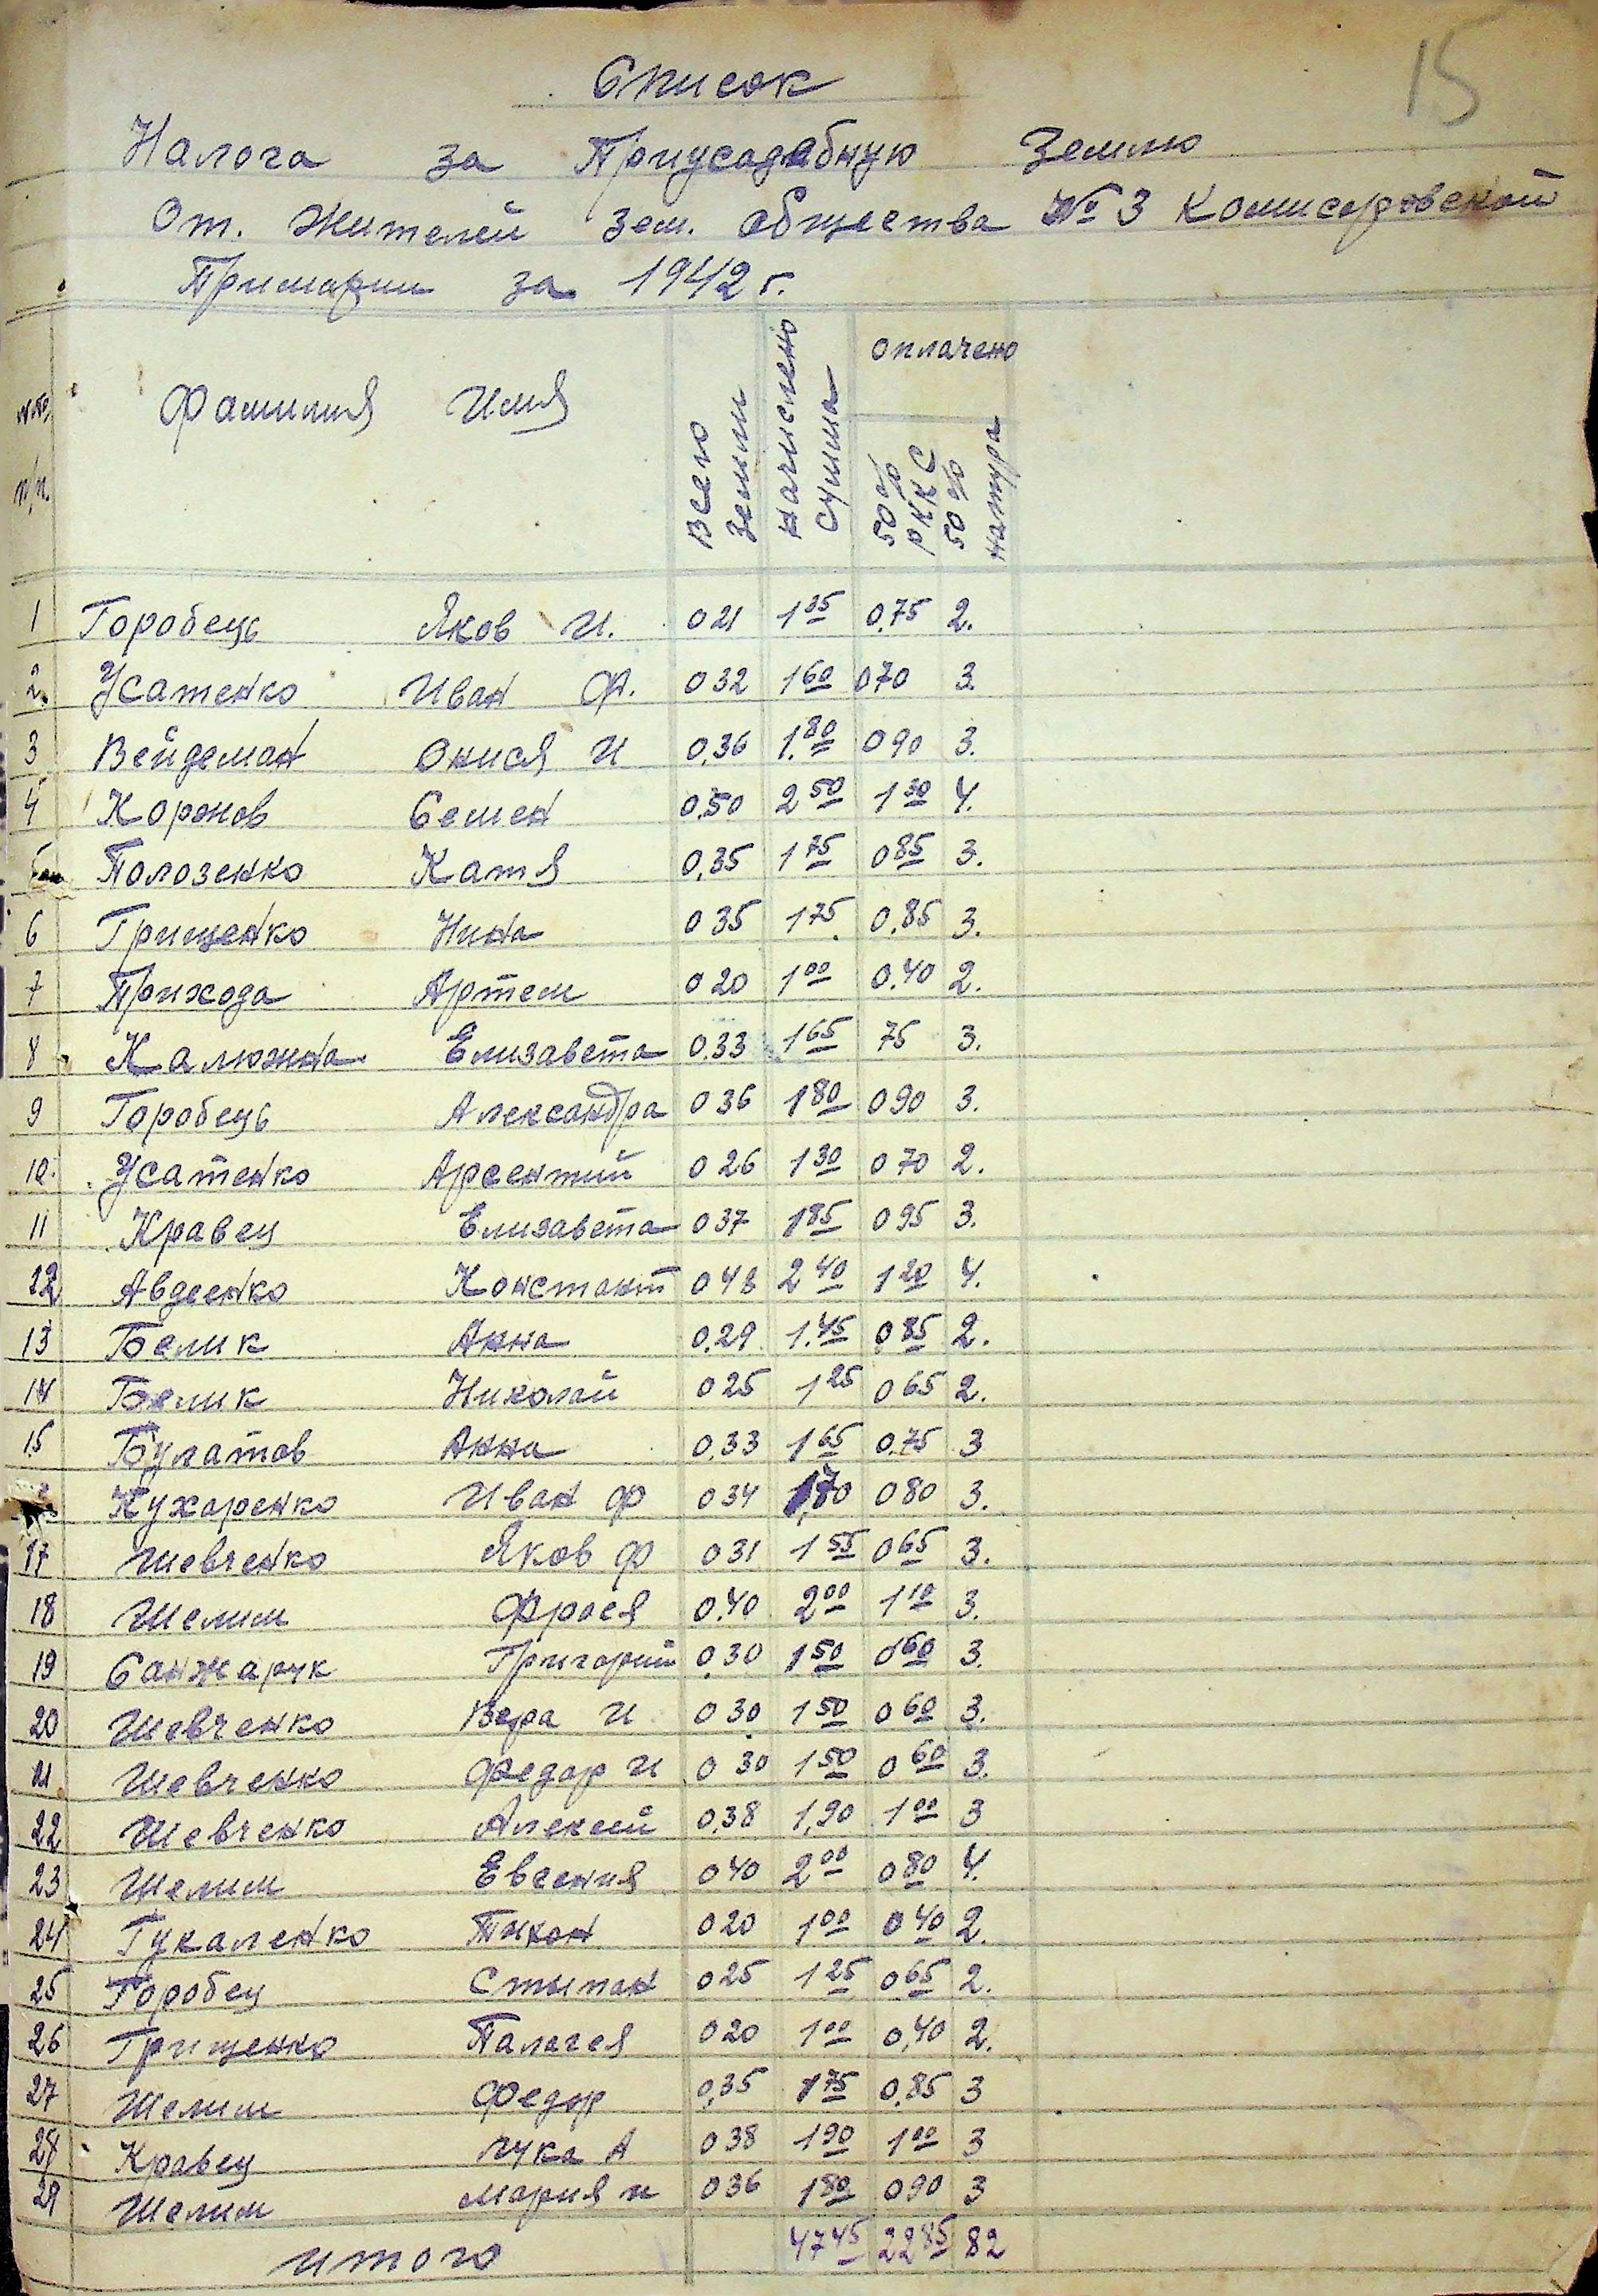 15
Список
Налога за Приусадебную Землю
От. Жителей зем. общества № 3 Комисаровской
Примарии за 1942 г.
№№ п/п. Фамилия Имя Всего земли начислено сумма оплачено 50% РККС 50% натура
1 Горобець Яков И. 0 21 1 05 0.75 2.
2. Усатенко Иван Ф. 0 32 1 60 0 70 3.
3 Вейдеман Онися И 0.36 1.80 0 90 3.
4 Коржов Семен 0.50 2 50 1 30 4.
Полозенко Катя 0.35 1 75 0 85 3.
6 Грищенко Нина 0 35 1 75 0.85 3.
7 Прихода Артем 0 20 1 00 0.40 2.
8 Калюжна Елизавета 0.33 1 65 75 3.
9 Горобець Александра 0 36 1 80 0 90 3.
10. Усатенко Арсентий 0 26 1 30 0 70 2.
11 Кравец Елизавета 0 37 1 85 0 95 3.
12 Авдеенко Констант 0 48 2 40 1 20 4.
13 Белик Анна 0.29 1.45 0 85 2.
14 Белик Николай 0 25 1 25 0 65 2.
15 Булатов Анна 0.33 1 65 0.75 3
Кухаренко Иван Ф 0 34 1,70 0 80 3.
17 Шевченко Яков Ф 0 31 1 55 0 65 3.
18 Шелим Фрося 0.40 2 00 1 10 3.
19 Санжарук Григорий 0.30 1 50 0 60 3.
20 Шевченко Вера И 0 30 1 50 0 60 3.
21 Шевченко Федор И 0 30 1 50 0 60 3.
22 Шевченко Алексей 0.38 1,90 1 00 3
23 Шелим Евгения 0 40 2 00 0 80 4.
24 Гукаленко Тихон 0 20 1 00 0 40 2.
25 Горобец Стыпан 0 25 1 25 0 65 2.
26 Грищенко Палагея 0 20 1 00 0,40 2.
27 Шелим Федор 0.35 1 75 0.85 3
28 Кравец Лука А 0 38 1 90 1 00 3
29 Шелим Мария И 0 36 1 80 0 90 3
Итого 47 45 22 85 82